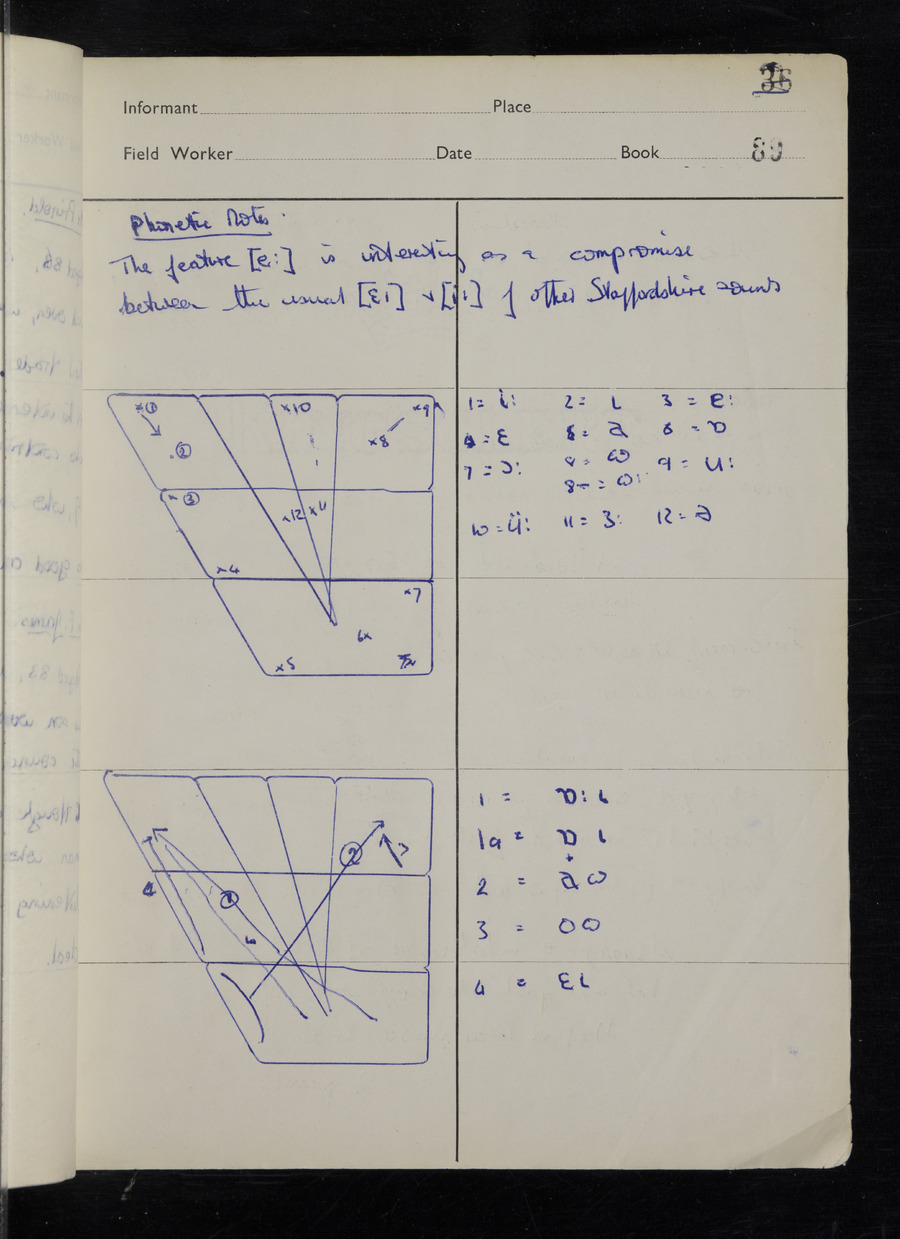 36
Informant Place
Field Worker Date Book 89
Phonetic Notes.
The feature [e:] is interesting as a compromise
between the usual [ɛɩ] & [i:] of other Staffordshire sounds
x① x10 x9
.② x8
x③
x12 x11
x4
x7
6x
x5
1 = i: 2 = ɩ 3 = e:
4 = ɛ 5 = a 6 = ɒ
7 = ɔ: 8 = ɷ 9 = u:
8a = ɷ:
10 = ü: 11 = ɜ: 12 = ə
② 3
4 ①
1 = ɒ:ɩ
1a = ɒ ɩ
2 = aɷ
3 = oɷ
4 = ɛɩ